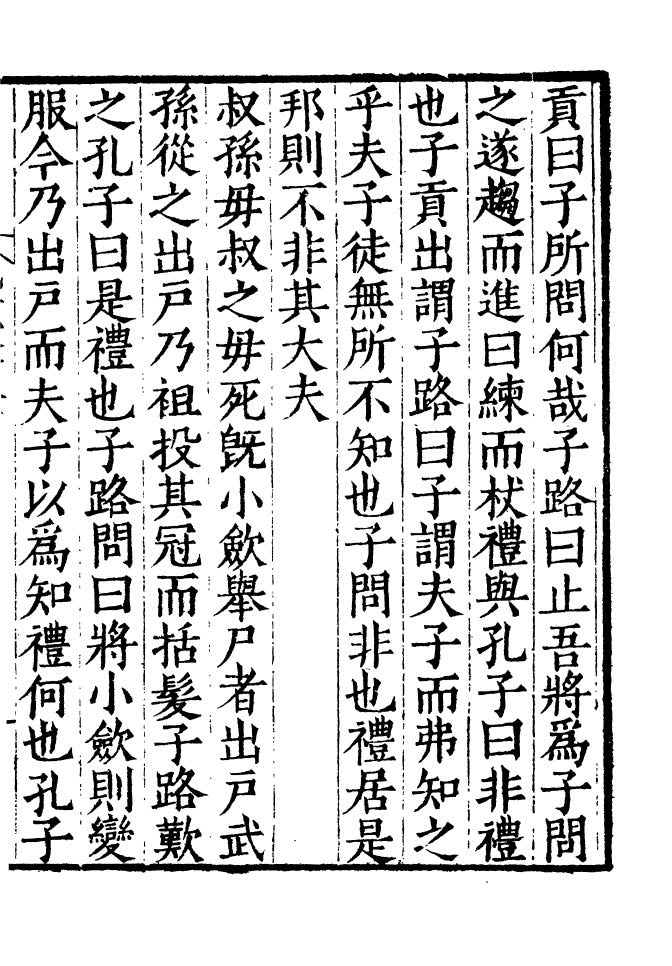 貢曰子所問何哉子路曰止吾將爲子問
之遂趨而進曰練而杖禮與孔子曰非禮
也子貢出謂子路曰子謂夫子而弗知之
乎夫子徒無所不知也子問非也禮居是
邦則不非其大夫
叔孫毋叔之毋死旣小歛舉尸者出戸武
孫從之出戸乃袒投其冠而括髮子路歎
之孔子曰是禮也子路問曰將小歛則變
服今乃出戸而夫子以爲知禮何也孔子